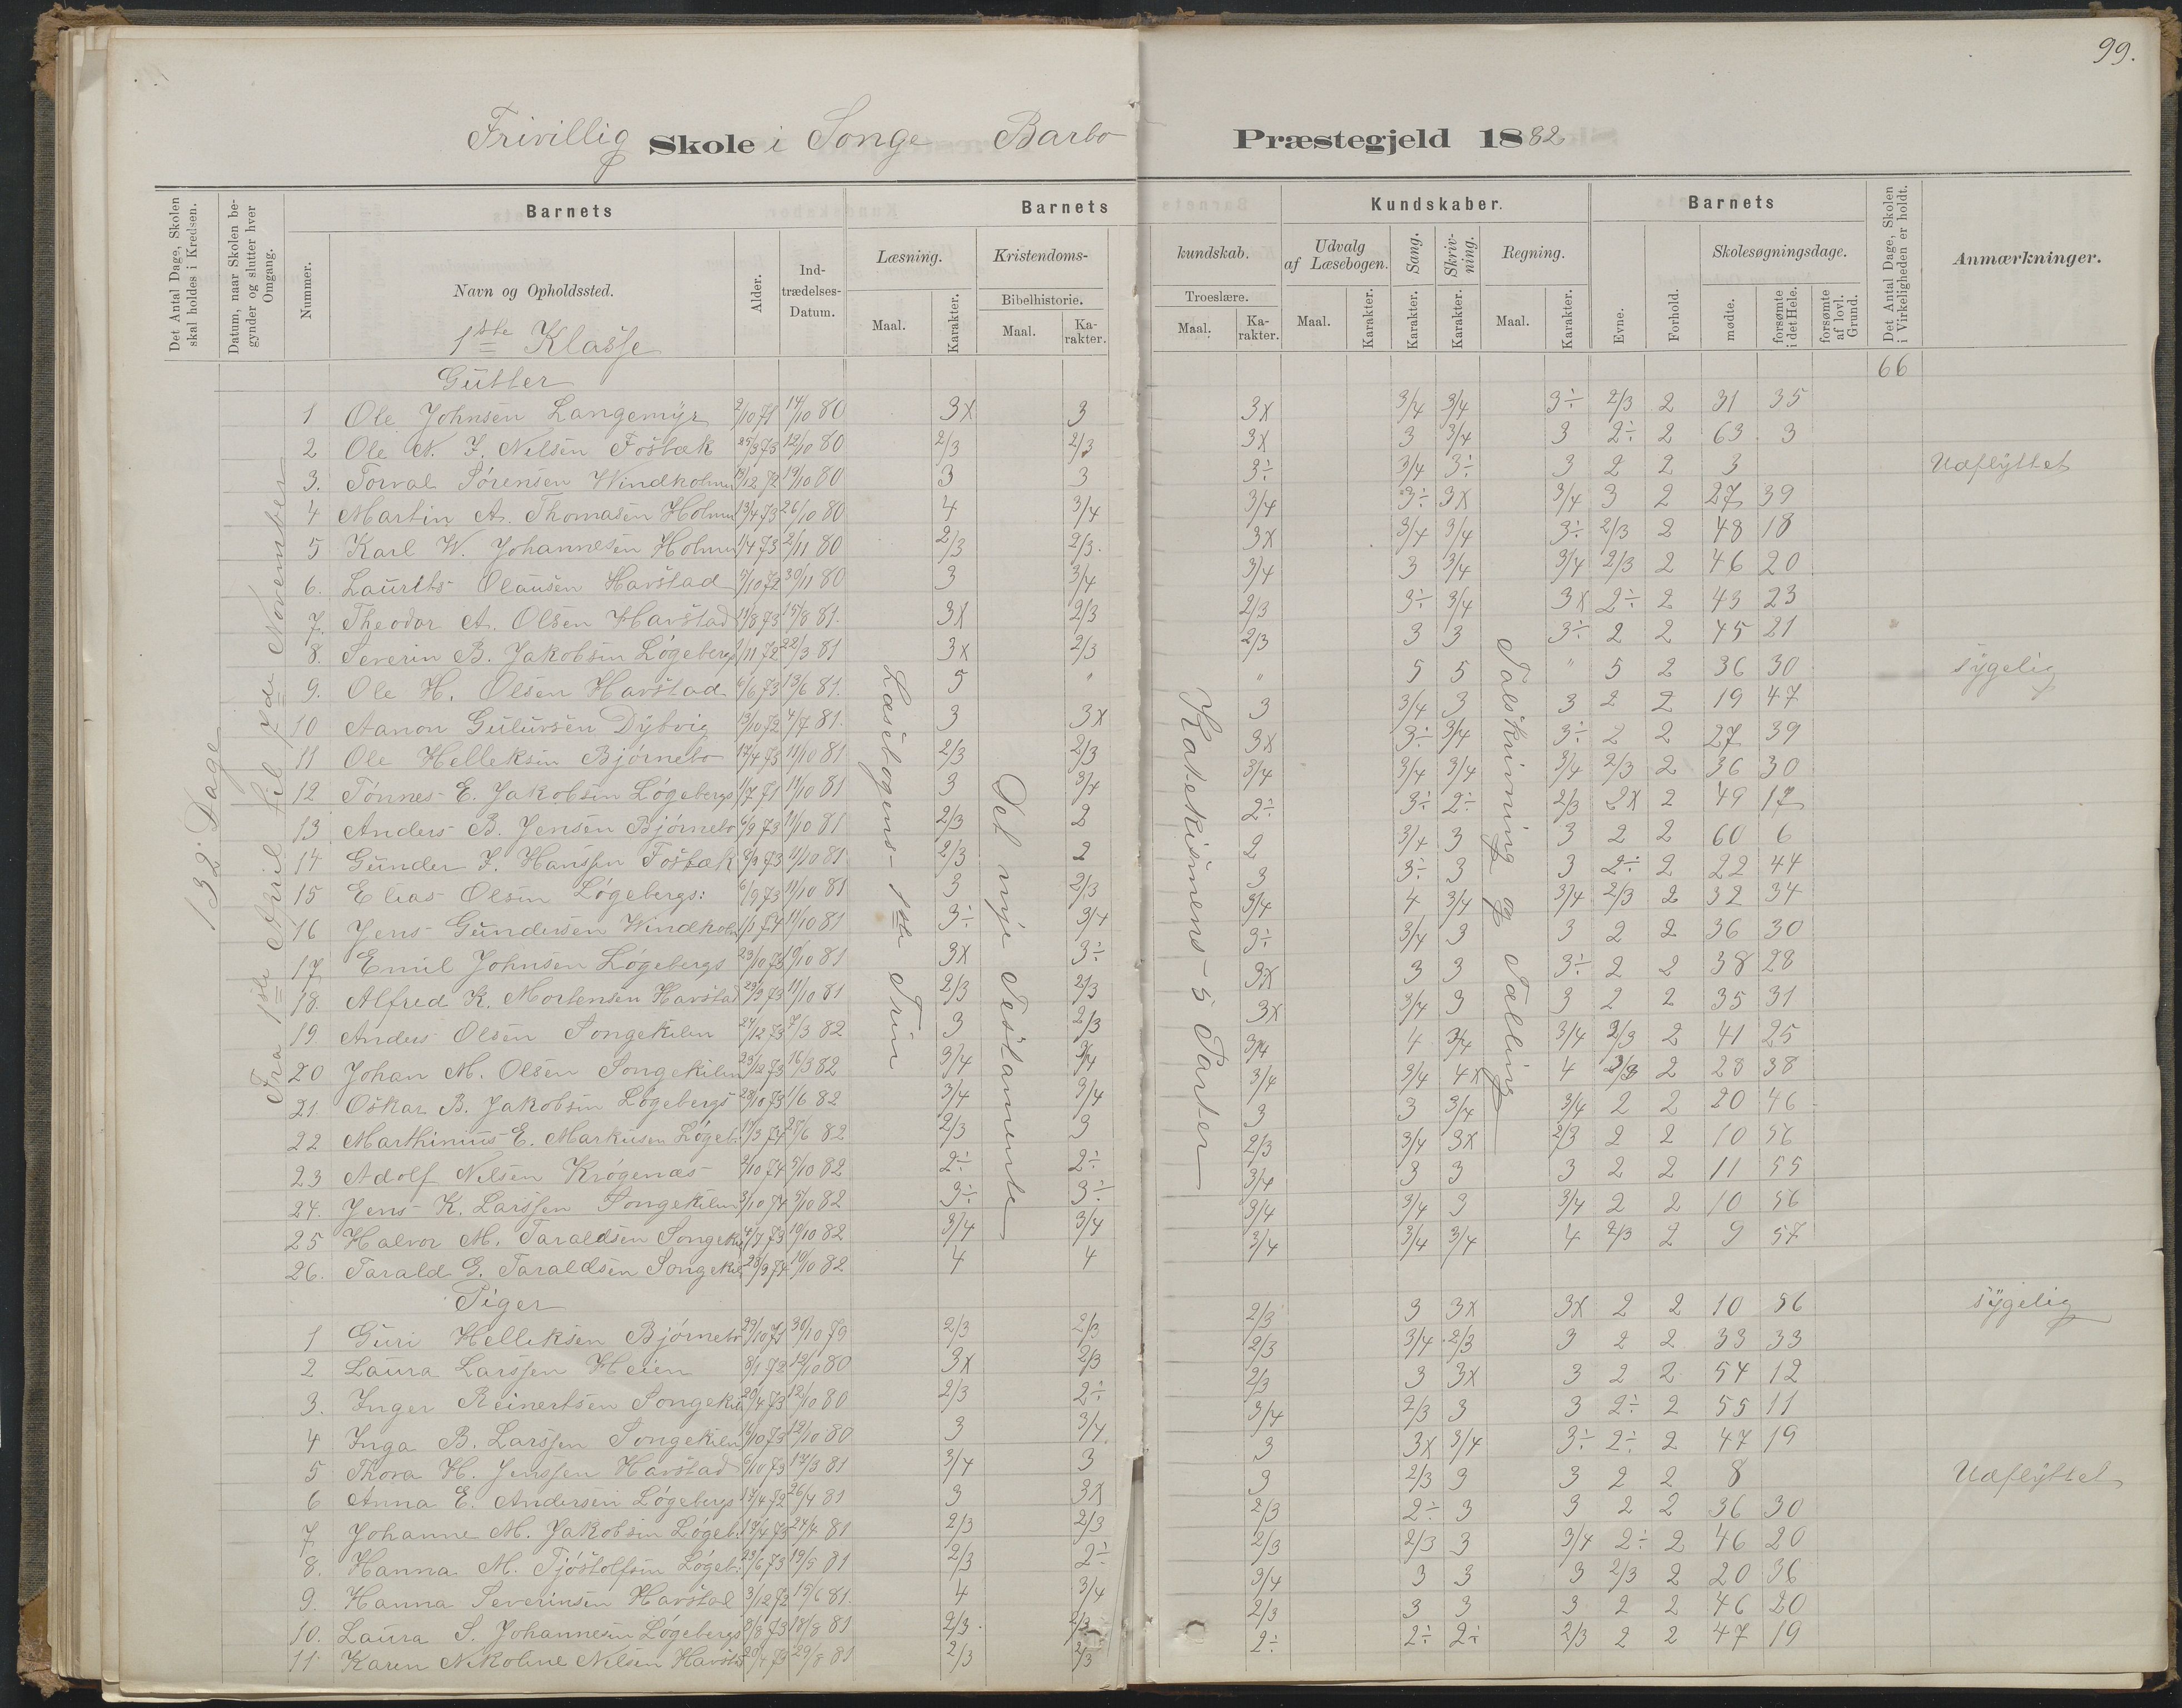 99.
Frivillig Skole i Songe Barbo Præstegjeld 1882
Det Antal Dage, Skolen skal holdes i Kredsen.
Datum, naar Skolen begynder og slutter hver Omgang.
Nummer.
Barnets
Navn og Opholdssted.
Alder.
Indtrædelses-Datum.
Barnets
Læsning.
Maal.
Karakter.
Kristendoms-
Bibelhistorie.
Maal.
Karakter.
kundskab.
Troeslære.
Maal.
Karakter.
Kundskaber.
Udvalg af Læsebogen.
Maal.
Karakter.
Sang.
Karakter.
Skrivning.
Karakter.
Regning.
Maal.
Karakter.
Barnets
Evne.
Forhold.
Skolesøgningsdage.
mødte.
forsømte i det Hele.
forsømte af lovl. Grund.
Det Antal Dage, Skolen i Virkeligheden er holdt.
Anmærkninger.
1ste Klasse
132 Dage
Fra 1ste April til 7de November
Læsebogens 1ste Trin
Det nye Testamente
Katekismens 5 Parter
Talskrivning og Tælling
66
Gutter
1 Ole Johnsen Langemyr 2/10 71 14/10 80 3x 3 3x 3/4 3/4 3÷ 2/3 2 31 35
2 Ole N. J. Nilsen Fosbæk 25/3 73 12/10 80 2/3 2/3 3x 3 3/4 3 2÷ 2 63 3
3. Torval Sørensen Windholmen 19/10 80 3 3 3÷ 3/4 3÷ 3 2 2 3 Udflyttet
4 Martin A. Thomasen Holmen 13/4 73 26/10 80 4 3/4 3/4 3÷ 3x 3/4 3 2 27 39
5 Karl W. Johannesen Holmen 1/4 73 2/11 80 2/3 2/3 3x 3/4 3/4 3÷ 2/3 2 48 18
6. Laurits Olausen Havstad 30/11 80 3 3/4 3/4 3 3/4 3/4 2/3 2 46 20
7. Theodor A. Olsen Havstad 11/8 73 15/8 81. 3x 2/3 2/3 3÷ 3/4 3x 2÷ 2 43 23
8. Severin B. Jakobsen Løgebergs 1/11 72 22/3 81 3x 2/3 2/3 3 3 3÷ 2 2 45 21
9. Ole H. Olsen Havstad 6/6 73 13/6 81. 5 " " 5 5 " 5 2 36 30 sygelig
10 Aanon Gulursen Dybvig 13/10 72 4/7 81. 3 3x 3 3/4 3 3 2 2 19 47
11 Ole Helleksen Bjørnebo 17/4 73 11/10 81 2/3 2/3 3x 3÷ 3/4 3÷ 2 2 27 39
12 Tønnes E. Jakobsen Løgebergs 1/7 71 11/10 81 3 3/4 3/4 3/4 3/4 3/4 2/3 2 36 30
13 Anders B. Jensen Bjørnebo 6/9 73 11/10 81 2/3 2 2÷ 3÷ 2÷ 2/3 2x 2 49 17
14 Gunder J. Hanssen Fosbæk 11/10 81 2/3 2 2 3/4 3 3 2 2 60 6
15 Elias Olsen Løgebergs: 6/9 73 11/10 81 3 2/3 3 3÷ 3 3 2÷ 2 22 44
16 Jens Gundersen Windholm 11/10 81 3÷ 3/4 3/4 4 3/4 3/4 2/3 2 32 34
17 Emil Johnsen Løgebergs 23/10 73 19/10 81 3x 3÷ 3÷ 3/4 3 3 2 2 36 30
18. Alfred K. Mortensen Havstad 29/9 73 11/10 81 2/3 2/3 3x 3 3 3÷ 2 2 38 28
19 Anders Olsen Songekilen 24/12 73 7/3 82 3 2/3 3x 3/4 3 3 2 2 35 31
20 Johan M. Olsen Songekilen 25/12 73 16/3 82 3/4 3/4 3/4 4 3/4 3/4 2/3 2 41 25
21 Oskar B. Jakobsen Løgebergs 28/10 73 1/6 82 3/4 3/4 3/4 3/4 4x 4 2/3 2 28 38
22 Marthinius E. Markusen Løgeb. 17/3 74 27/6 82 2/3 3 3 3 3/4 3/4 2 2 20 46
23 Adolf Nilsen Krøgenæs 2/10 74 5/10 82 2÷ 2÷ 2/3 3/4 3x 2/3 2 2 10 56
24. Jens K. Larssen Songekilen 3/10 74 5/10 82 3÷ 3÷ 3/4 3 3 3 2 2 11 55
25 Halvor M. Taraldsen Songekil 4/7 73 10/10 82 3/4 3/4 3/4 3/4 3 3/4 2 2 10 56
26. Tarald G. Taraldsen Songekil 28/9 74 10/10 82 4 4 3/4 3/4 3/4 4 2/3 2 9 57
Piger
1 Guri Helleksen Bjørnebo 29/10 71 30/10 79 2/3 2/3 2/3 3 3x 3x 2 2 10 56 sygelig
2 Laura Larssen Heien 8/1 72 12/10 80 3x 2/3 2/3 3/4 2/3 3 2 2 33 33
3. Inger Reinertsen Songekil 20/4 73 12/10 80 2/3 2÷ 2/3 3 3x 3 2 2 54 12
4 Inga B. Larssen Songekilen 16/10 73 12/10 80 3 3/4 3/4 2/3 3 3 2÷ 2 55 11
5 Thora H. Jenssen Havstad 6/10 73 17/3 81 3/4 3 3 3x 3/4 3÷ 2÷ 2 47 19
6 Anna E. Andersen Løgebergs 17/4 72 26/4 81 3 3x 3 2/3 3 3 2 2 8 Udflyttet
7 Johanne M. Jakobsen Løgeb. 24/4 81 2/3 2/3 2/3 2÷ 3 3 2 2 36 30
8. Hanna M. Tjøstolfsen Løgeb. 23/6 73 19/5 81 2/3 2÷ 2/3 2/3 3 3/4 2÷ 2 46 20
9. Hanna Severinsen Havstad 3/12 72 15/6 81. 4 3/4 3/4 3 3 3 2/3 2 20 36
10. Laura S. Johannesen Løgebergs 18/8 81 2/3 2/3 2/3 3 3 3 2 2 46 20
11 Karen Nikoline Nilsen Havstd 29/8 81 2/3 2/3 2÷ 2÷ 2÷ 2/3 2 2 47 19